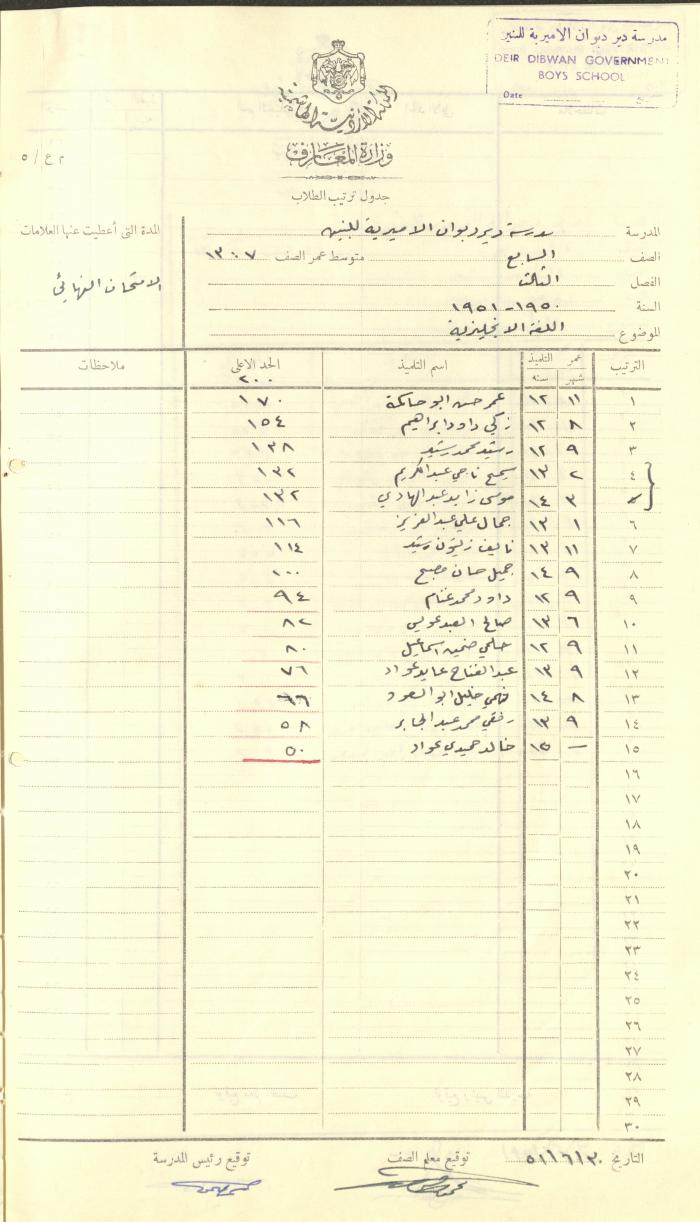 مدرسة دير دبوان الاميرية للبنين
DEIR DIBWAN GOVERNMENT
BOYS SCHOOL
Date
المملكة الأردنية الهاشمية
وزارة المعارف
م ع / ٥
جدول ترتيب الطلاب
المدرسة مدرسة دير دبوان الاميرية للبنين
المدة التى أعطيت عنها العلامات
الصف السابع متوسط عمر الصف ١٣،٠٧
الفصل الثالث
الامتحان النهائي
السنة ١٩٥٠-١٩٥١
الموضوع اللغة الانجليزية
الترتيب عمر التلميذ اسم التلميذ الحد الاعلى ملاحظات
شهر سنه ٢٠٠
١ ١١ ١٢ عمر حسن ابو حاكمة ١٧٠
٢ ٨ ١٢ زكي داود ابراهيم ١٥٤
٣ ٩ ١٢ رشيد محمد رشيد ١٣٨
٤ ٢ ١٣ سميح ناجي عبدالكريم ١٣٢
٣ ١٤ موسى زايد عبد الهادي ١٣٢
٦ ١ ١٣ جمال علي عبد العزيز ١١٦
٧ ١١ ١٣ نايف زيتون رشيد ١١٤
٨ ٩ ١٤ جميل حسان مصبح ١٠٠
٩ ٩ ١٢ داود محمد غنام ٩٤
١٠ ٦ ١٣ صالح العبد عويس ٨٢
١١ ٩ ١٢ حلمي اسماعيل ٨٠
١٢ ٩ ١٣ عبد الفتاح عايد عواد ٧٦
١٣ ٨ ١٤ فهمي خليل ابو السعود ٦٦
١٤ ٩ ١٣ رفقي محمد عبد الجابر ٥٨
١٥ — ١٥ خالد حميدي عواد ٥٠
١٦
١٧
١٨
١٩
٢٠
٢١
٢٢
٢٣
٢٤
٢٥
٢٦
٢٧
٢٨
٢٩
٣٠
التاريخ ٥١/٦/٣٠ توقيع معلم الصف توقيع رئيس المدرسة